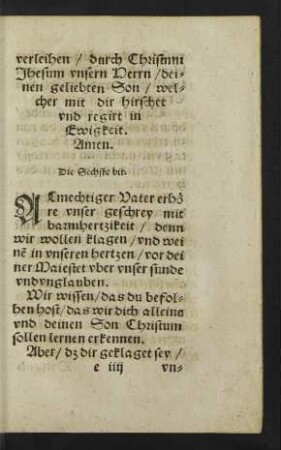 verleihen / durch Christum
Jhesum vnsern Herrn / dei-
nen geliebten Son / wel-
cher mit dir hirschet
vnd regirt in
Ewigkeit.
Amen.
Die Sechste bit.
ALmechtiger Vater erhö
re vnser geschrey mit
barmhertzikeit / denn
wir wollen klagen / vnd wei
nē in vnseren hertzen / vor dei
ner Maiestet vber vnser sunde
vndvnglauben.
Wir wissen / das du befol-
hen host / das wir dich alleine
vnd deinen Son Christum
sollen lernen erkennen.
Aber / dz dir geklaget sey /
e iiij vn-